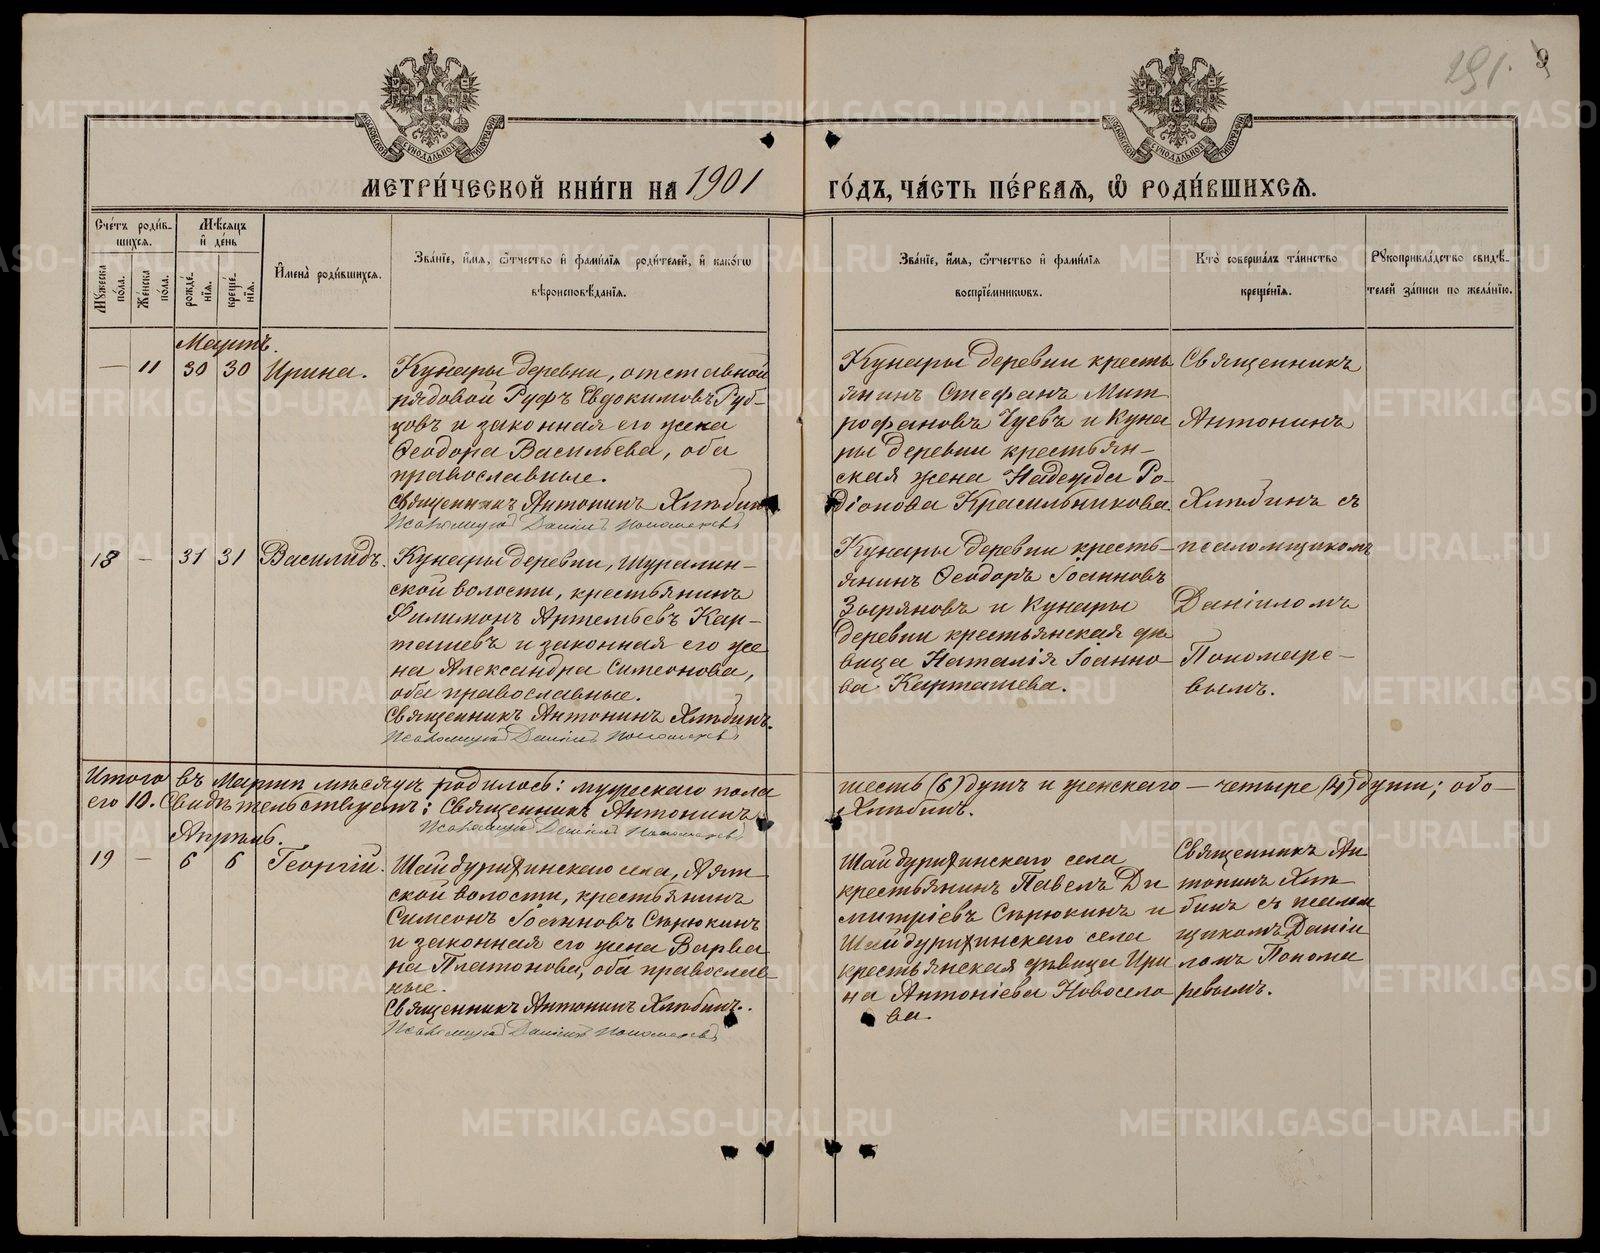 291. 9
МОСКОВСКОЙ СѴНОДАЛЬНОЙ ТИПОГРАФІИ
МОСКОВСКОЙ СѴНОДАЛЬНОЙ ТИПОГРАФІИ
МЕТРИ́ЧЕСКОЙ КНИ́ГИ НА 1901 ГО́ДЪ, ЧА́СТЬ ПЕ́РВАЯ, Ѡ РОДИ́ВШИХСЯ.
Сче́тъ роди́в-
шихся.
Мѣ́сяцъ
и де́нь
Му́жеска по́ла.
Же́нска по́ла.
рожде́-
нія.
креще́-
нія.
Имена̀ роди́вшихся.
Зва́ніе, и́мя, о́тчество и фами́лія роди́телей, и како́гѡ
вѣроисповѣ́данія.
Зва́ніе, и́мя, о́тчество и фами́лія
воспріе́мниковъ.
Кто̀ соверша́лъ та́инство
креще́нія.
Рукоприкла́дство свидѣ́-
телей за́писи по жела́нію.
Мартъ.
— 11 30 30 Ирина.
Кунары деревни, отставной
рядовой Руфъ Евдокимовъ Руб-
цовъ и законная его жена
Ѳеодора Васильева, оба
православные.
Священникъ Антонинъ Хлѣбинъ
Псаломщикъ Даніилъ Пономаревъ
Кунары деревни кресть
янинъ Стефанъ Мит
рофановъ Чуевъ и Куна
ры деревни крестьян-
ская жена Надежда Ро-
діонова Красильникова
Священникъ
Антонинъ
Хлѣбинъ съ
псаломщикомъ
Даніиломъ
Пономаре-
вымъ.
18 — 31 31 Василидъ.
Кунары деревни, Шуралин-
ской волости, крестьянинъ
Филимонъ Артемьевъ Кар-
ташевъ и законная его же
на Александра Симеонова,
оба православные.
Священникъ Антонинъ Хлѣбинъ.
Псаломщикъ Даніилъ Пономаревъ
Кунары деревни кресть-
янинъ Ѳеодоръ Іоанновъ
Зыряновъ и Кунары
деревни крестьянская дѣ
вица Наталія Іоанно-
ва Карташева.
Итого въ Мартѣ мѣсяцѣ родилось: мужескаго пола шесть (6) душъ и женскаго — четыре (4) души; обо-
его 10. Свидѣтельствуемъ: Священникъ Антонинъ Хлѣбинъ.
Псаломщикъ Даніилъ Пономаревъ
Апрѣль.
19 — 6 6 Георгій.
Шайдурихинскаго села, Аят-
ской волости, крестьянинъ
Симеонъ Іоанновъ Сѣрюкинъ
и законная его жена Варва
ра Платонова, оба православ-
ные.
Священникъ Антонинъ Хлѣбинъ.
Псаломщикъ Даніилъ Пономаревъ
Шайдурихинскаго села
крестьянинъ Павелъ Ди
митріевъ Сѣрюкинъ и
Шайдурихинскаго села
крестьянская дѣвица Ири
на Антоніева Новосело
ва.
Священникъ Ан
тонинъ Хлѣ
бинъ съ псалом
щикомъ Даніи
ломъ Понома
ревымъ.
METRIKI.GASO-URAL.RU